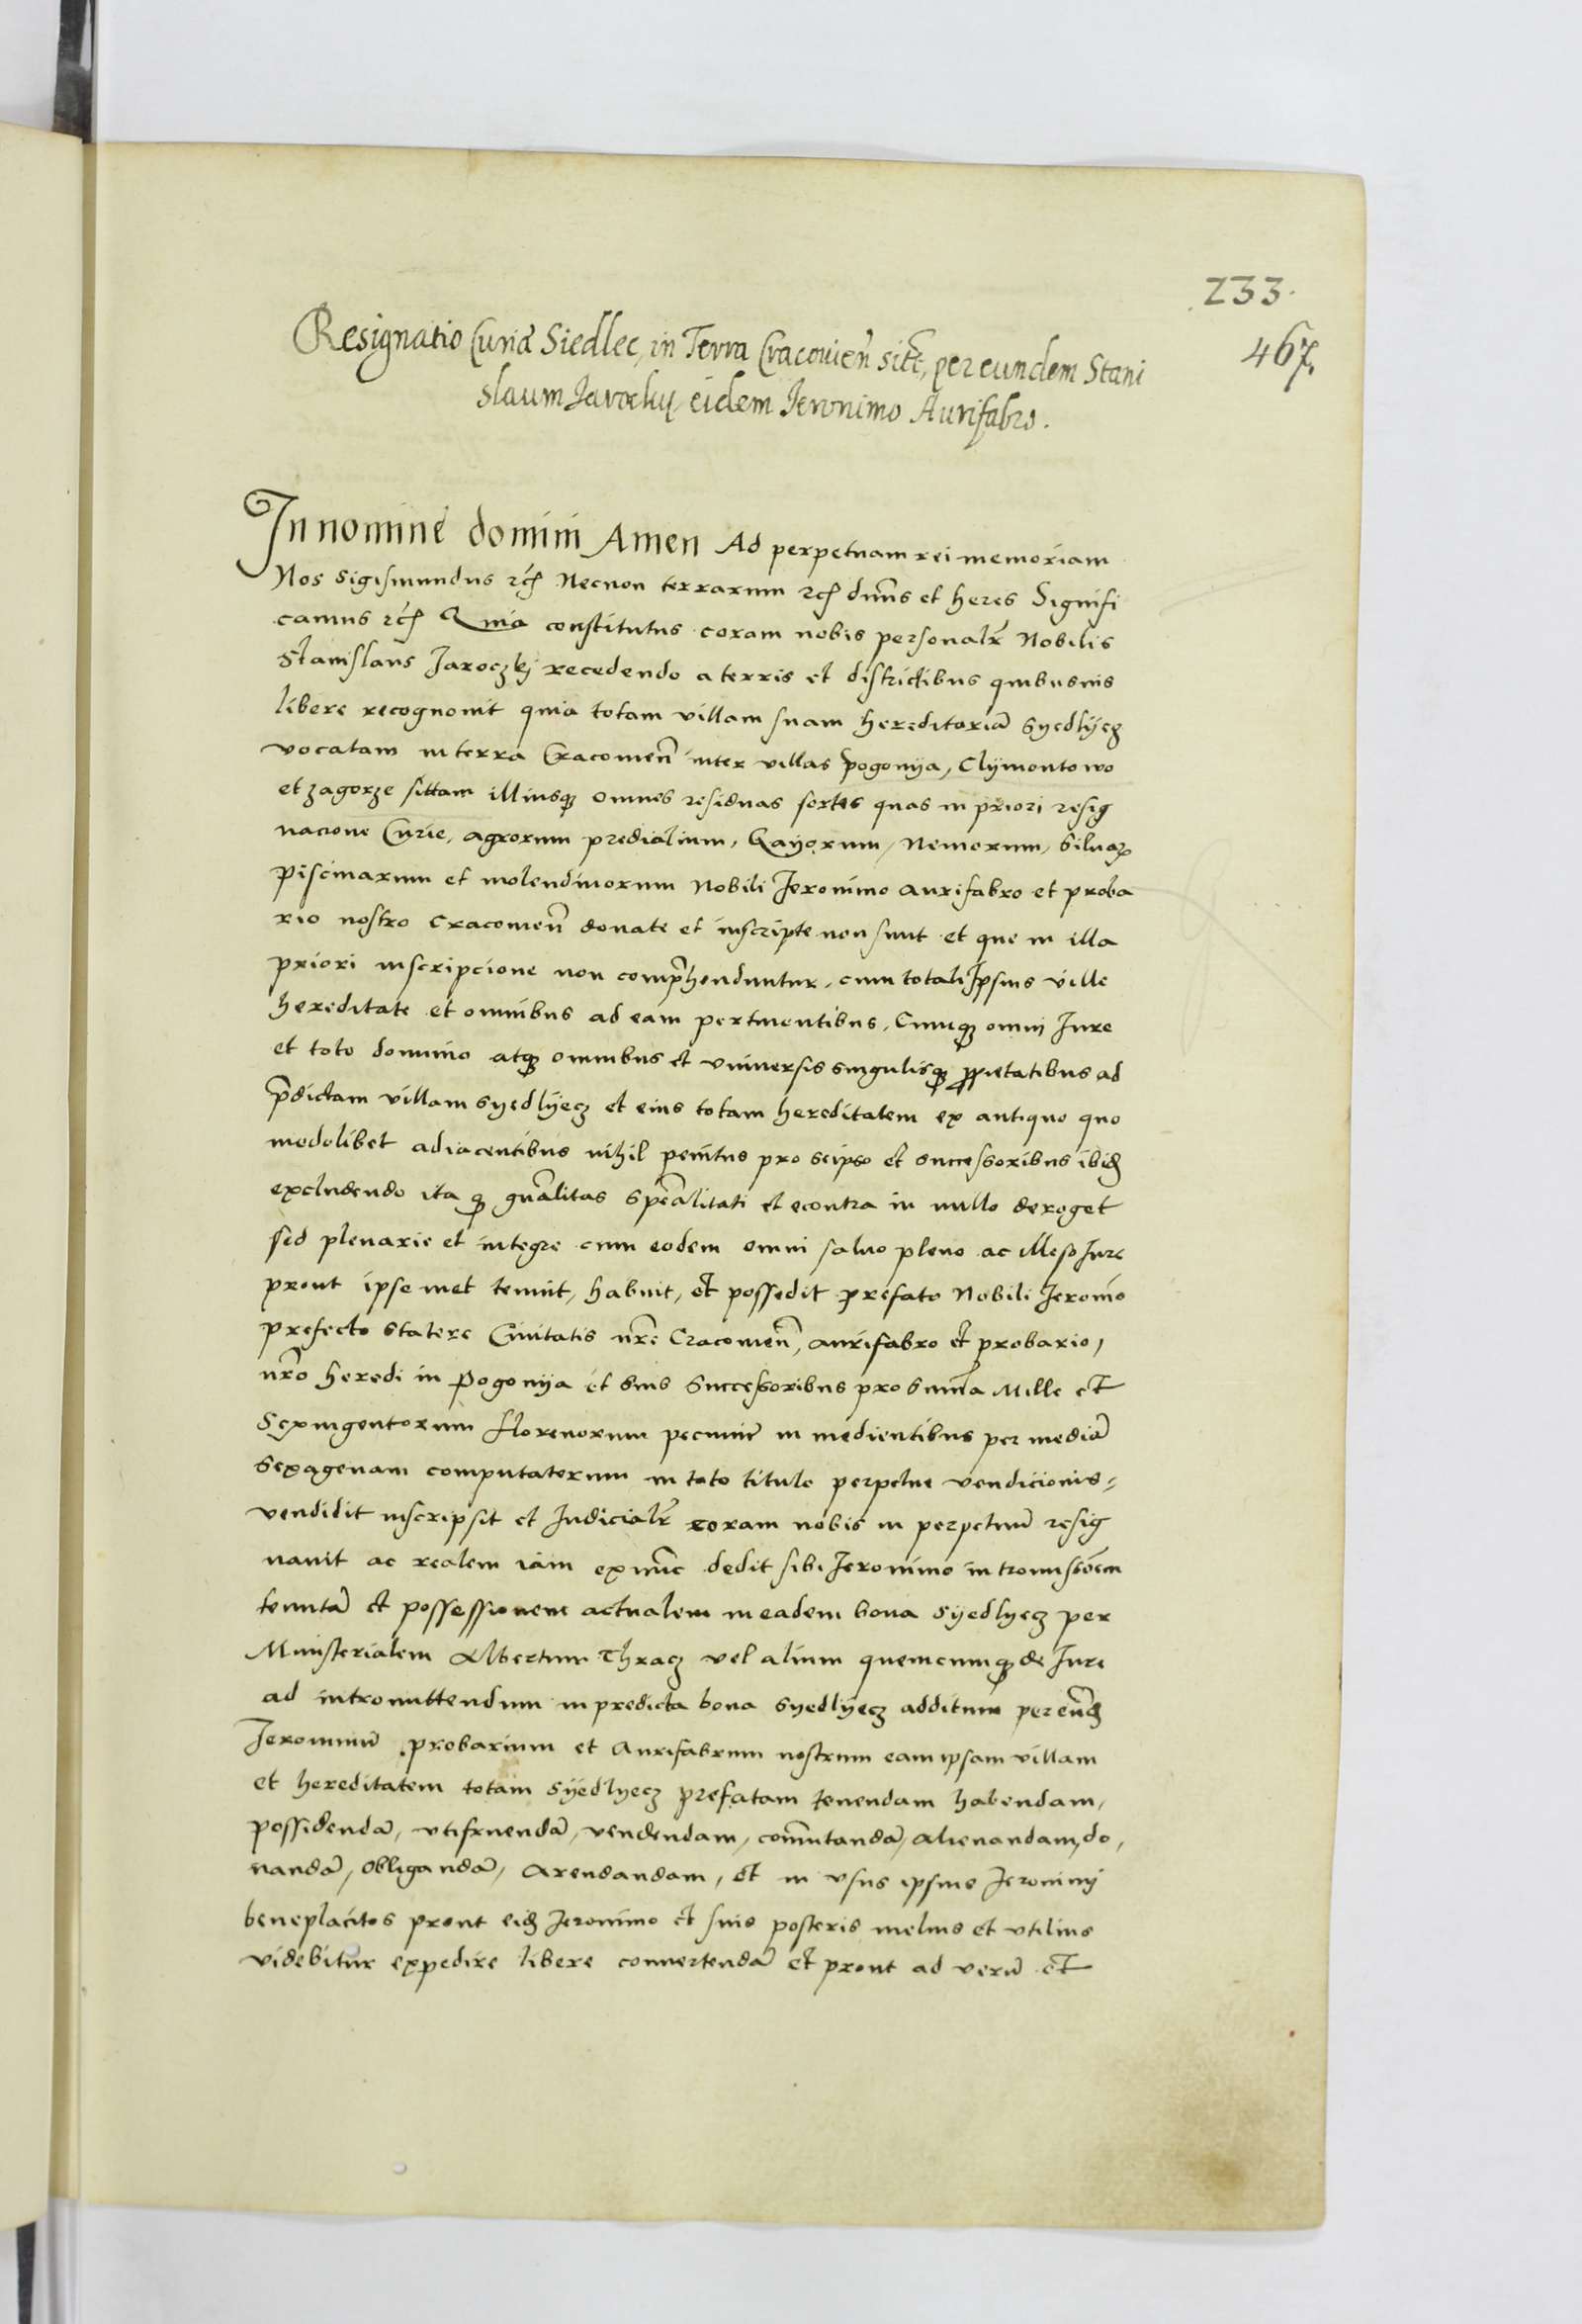 233.
467.
Resignatio Curiæ Siedlec, in Terra Cracovieñ sitæ, per eundem Stani
slaum Jaroczky, eidem Jeronimo Aurifabro.
In nomine domini Amen Ad perpetuam rei memoriam
Nos Sigismundus etc̃ Necnon terrarum etc̃ dnus et heres Signifi
camus etc̃ Quia constitutus coram nobis personalr̃ Nobilis
Stanislaus Jaroczkj recedendo a terris et districtibus quibusuis
libere recognouit quia totam villam suam hereditariã Syedlÿecz
vocatam in terra Cracouieñ inter villas Pogonya, Clymontowo
et zagorze sittam illiusq₃ omnes residuas sortes quas in priori resig
nacione Curie, agrorum predialium, Gayorum, Nemorum, Siluaꝝ
Piscinarum et molendinorum Nobili Jeronimo aurifabro et proba
rio nostro Cracouieñ donate et inscripte non sunt et que in illa
priori inscripcione non comp̃henduntur, cum totali Ipsius ville
hereditate et omnibus ad eam pertinentibus, Cumq₃ omni Jure
et toto dominio atq₃ omnibus et vniuersis singulisq₃ ꝓprietatibus ad
p̃dictam villam Syedlÿecz et eius totam hereditatem ex antiquo quo
modolibet adiacentibus nihil penitus pro seipso et successoribus ibid₃
excludendo ita q₃ gnãlitas specãlitati et econtra in nullo deroget
sed plenarie et integre cum eodem omni saluo pleno ac illeso Jure
prout ipse met tenuit, habuit, et possedit prefato Nobili Jeronio
prefecto statere Ciuitatis nr̃e Cracouieñ, aurifabro et probario,
nr̃o heredi in Pogonya et suis Successoribus pro sum̃a Mille et
Sexingentorum florenorum pecunie in medientibus per mediã
sexagenam computatorum in toto titulo perpetue vendicionis
vendidit inscripsit et Judicialr̃ coram nobis in perpetuũ resig
nauit ac realem iam exnũc dedit sibi Jeronimo intromissiõem
tenutã et possessionem actualem in eadem bona Syedlyecz per
Ministerialem Albertum Thracz vel alium quemcumq₃ de Jure
ad intromittendum in predicta bona Syedlyecz additum per eund₃
Jeronimũ probarium et Aurifabrum nostrum eam ipsam villam
et hereditatem totam Syedlyecz prefatam tenendam habendam,
possidendã, vtifruendã, vendendam, com̃utandã, alienandam, do,
nandã, obligandã, Arendandam, et in vsus ipsius Jeronimj
beneplacitos prout eid₃ Jeronimo et suis posteris melius et vtilius
videbitur expedire libere conuertendã et prout ad verũ et